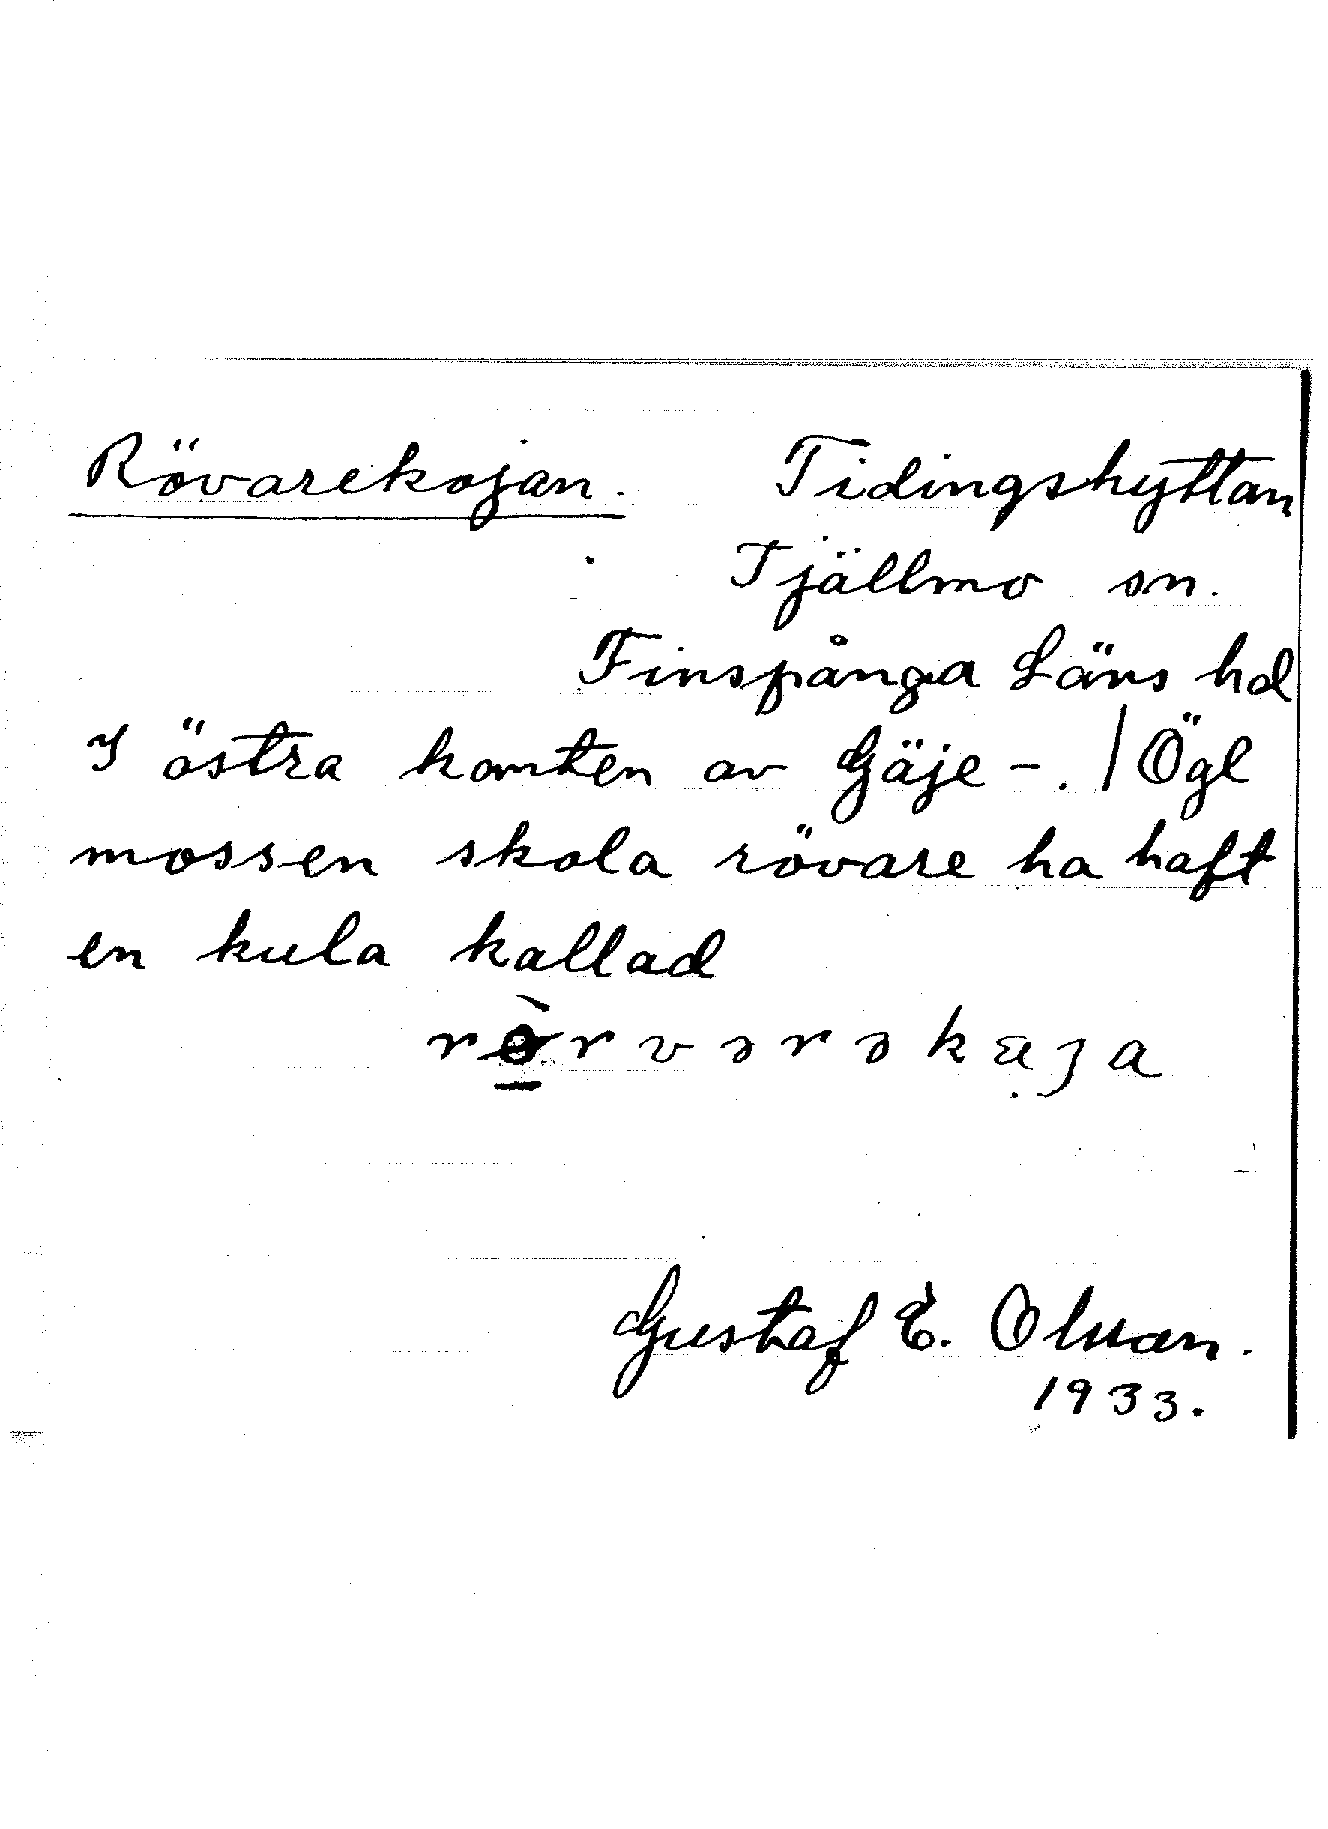 Rövarekojan. Tidingshyttan
Tjällmo sn.
Finspånga Läns hd
I östra kanten av Gäje-. / Ögl
mossen skola rövare ha haft
en kula kallad
Gustaf E. Olsson.
1933.